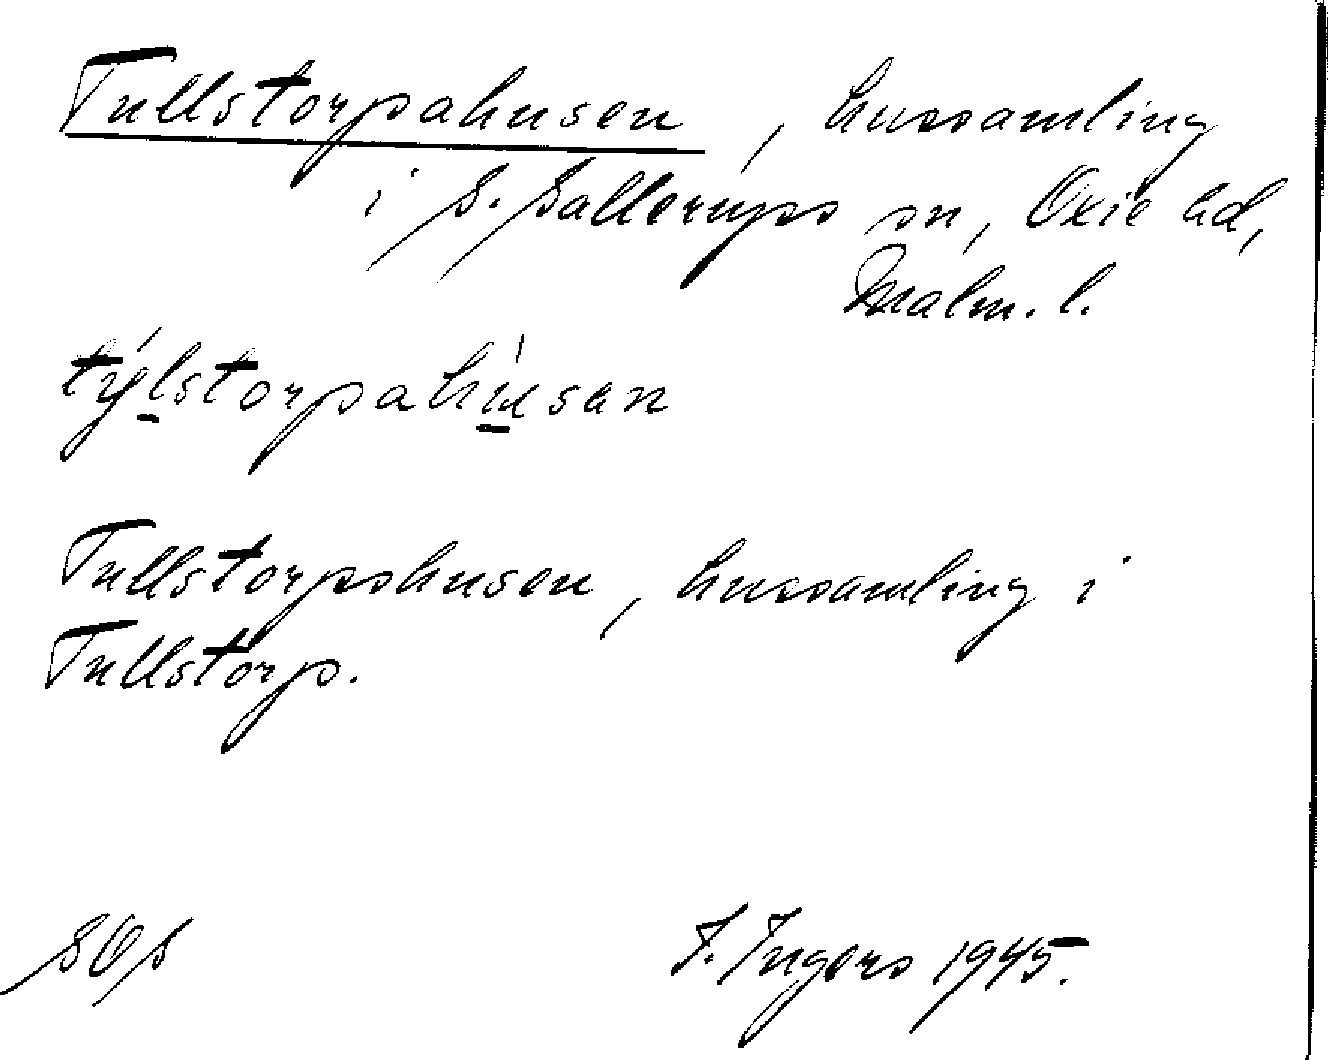 Tullstorpahusen, hussamling
i S. Sallerups sn, Oxie hd,
Malm. l.
týlstorpahúsan
Tullstorpshusen, hussamling i
Tullstorp.
SOS
I. Ingers 1945.